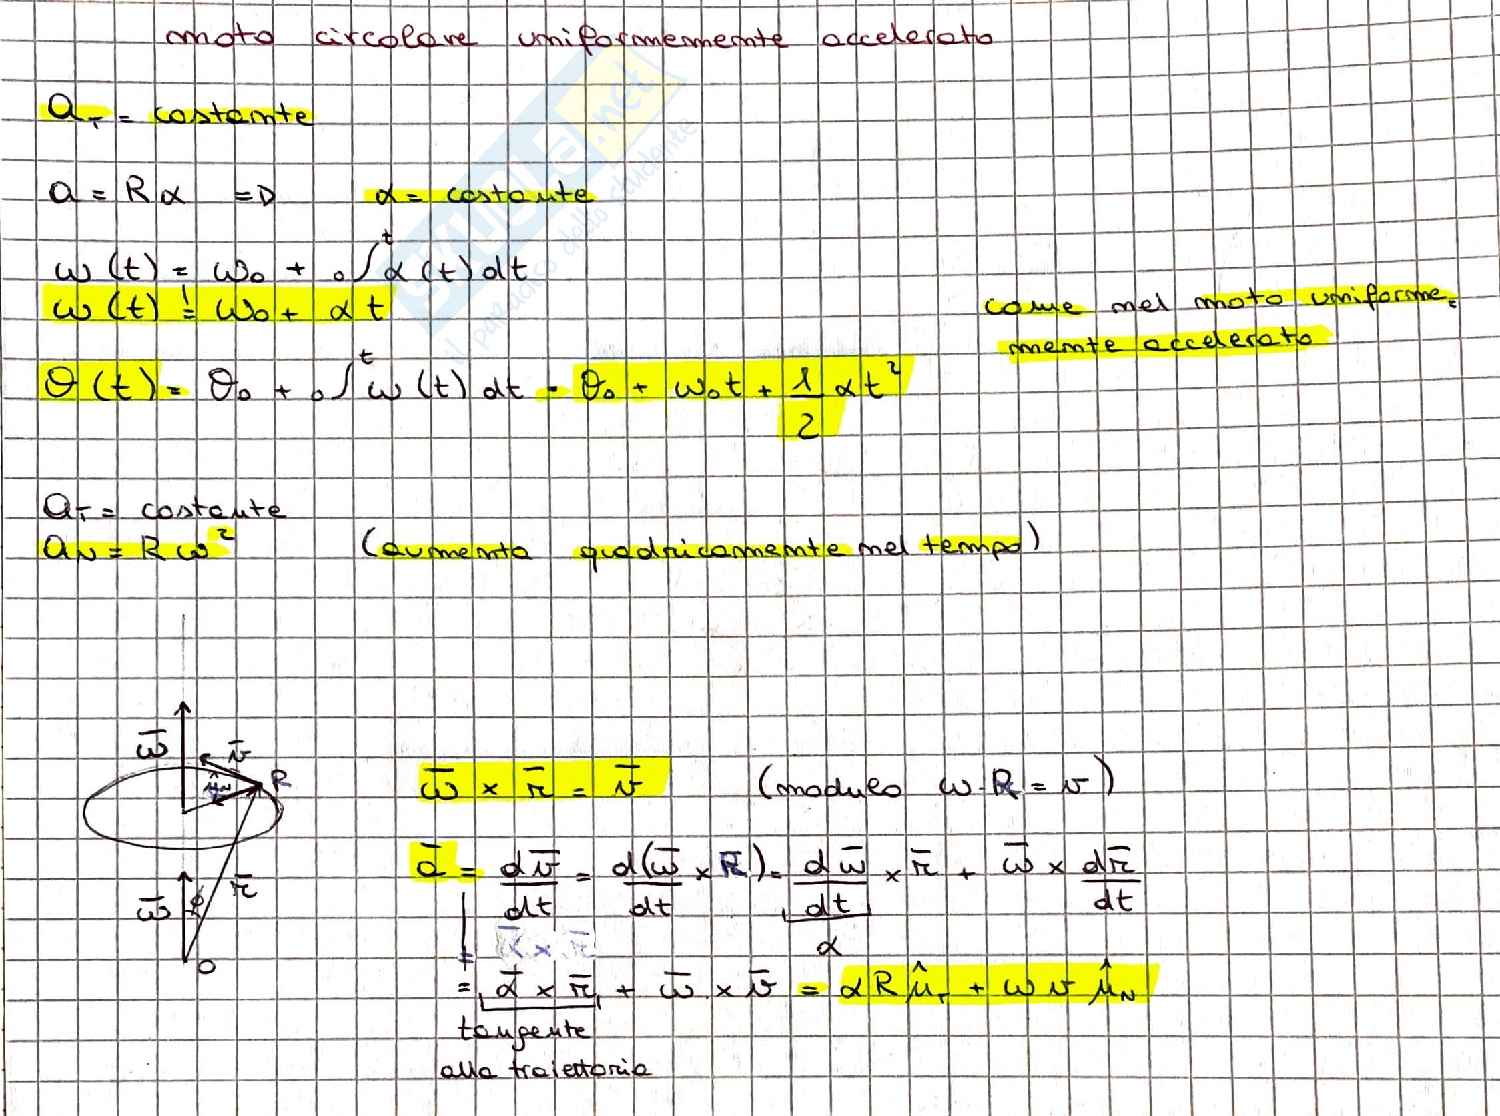 moto circolare uniformemente accelerato
a_T = costante
a = Rα => α = costante
ω(t) = ω₀ + ₀∫ᵗ α(t) dt
ω(t) = ω₀ + αt
come nel moto uniforme-
mente accelerato
θ(t) = θ₀ + ₀∫ᵗ ω(t) dt = θ₀ + ω₀t + 1/2 αt²
a_T = costante
a_N = Rω² (aumenta quadricamente nel tempo)
ω̄ v̄ R
û_N
ω̄ r̄
O
ω̄ × r̄ = v̄ (modulo ω·R = v)
ā = dv̄/dt = d(ω̄ × r̄)/dt = dω̄/dt × r̄ + ω̄ × dr̄/dt
α
= ᾱ × r̄ + ω̄ × v̄ = αR û_T + ωv û_N
tangente
alla traiettoria
SKUOLA.net
il paradiso dello studente